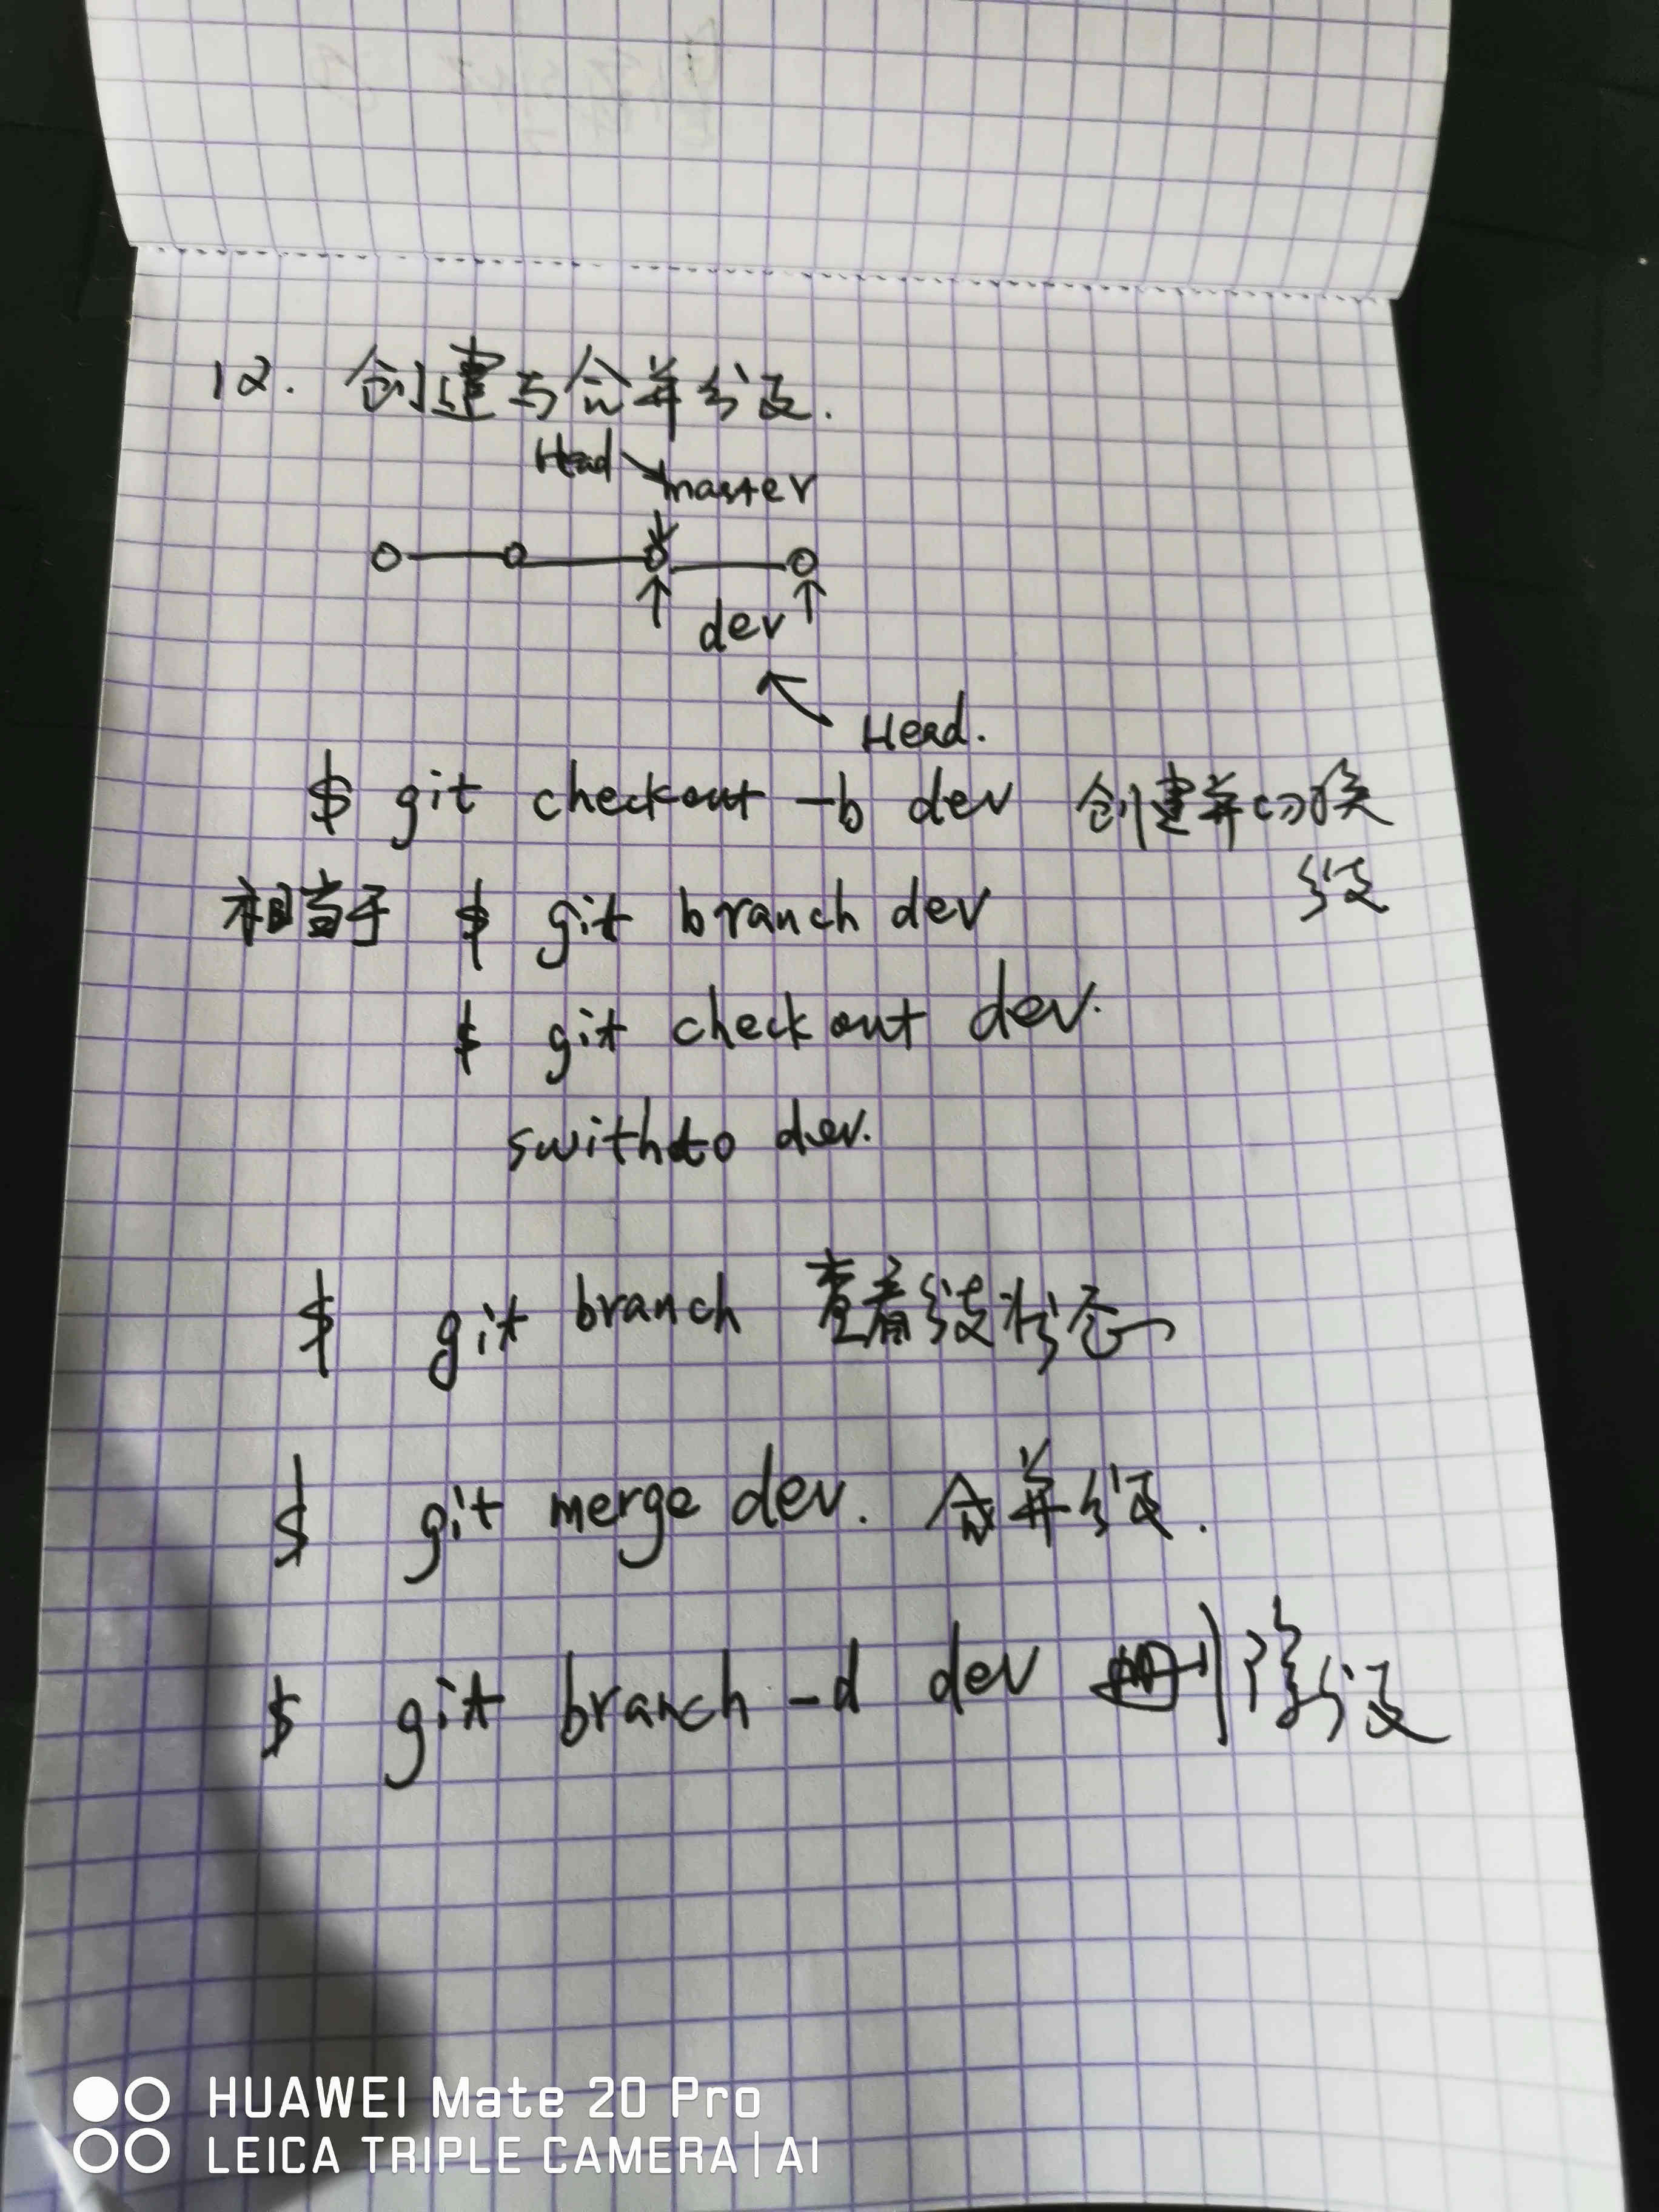 12. 创建与合并分支.
Head
master
dev
Head.
$ git checkout -b dev 创建并切换
分支
相当于 $ git branch dev
$ git checkout dev.
swithto dev.
$ git branch 查看分支状态
$ git merge dev. 合并分支.
$ git branch -d dev 删除分支
HUAWEI Mate 20 Pro
LEICA TRIPLE CAMERA | AI